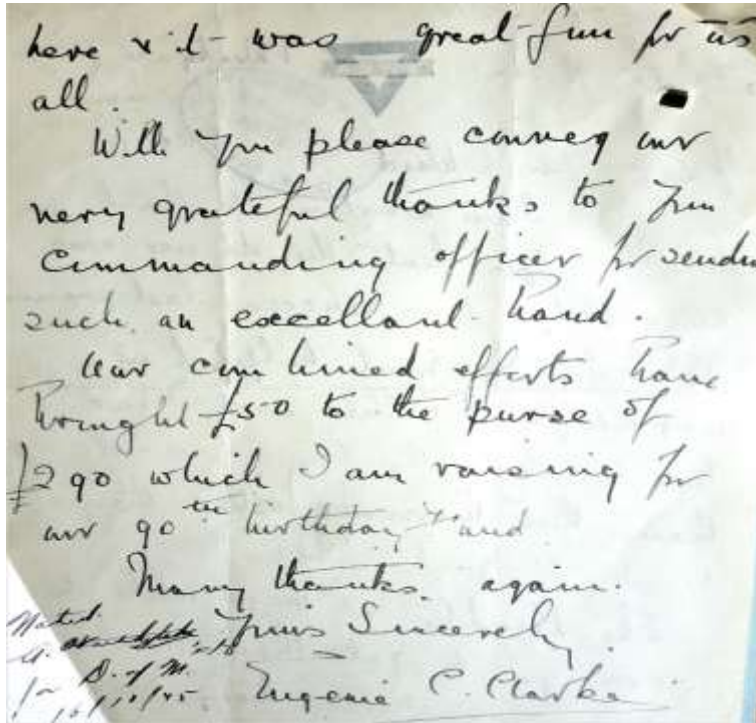 here & it was great fun for us
all.
Will you please convey our
very grateful thanks to your
Commanding officer for sendin
such an excellant band.
Our combined efforts have
brought £50 to the purse of
£290 which I am raising for
our 90th birthday Fund.
Many thanks again.
Yours Sincerely
Eugenie C. Clarke
Noted.
for D. of M.
10/45